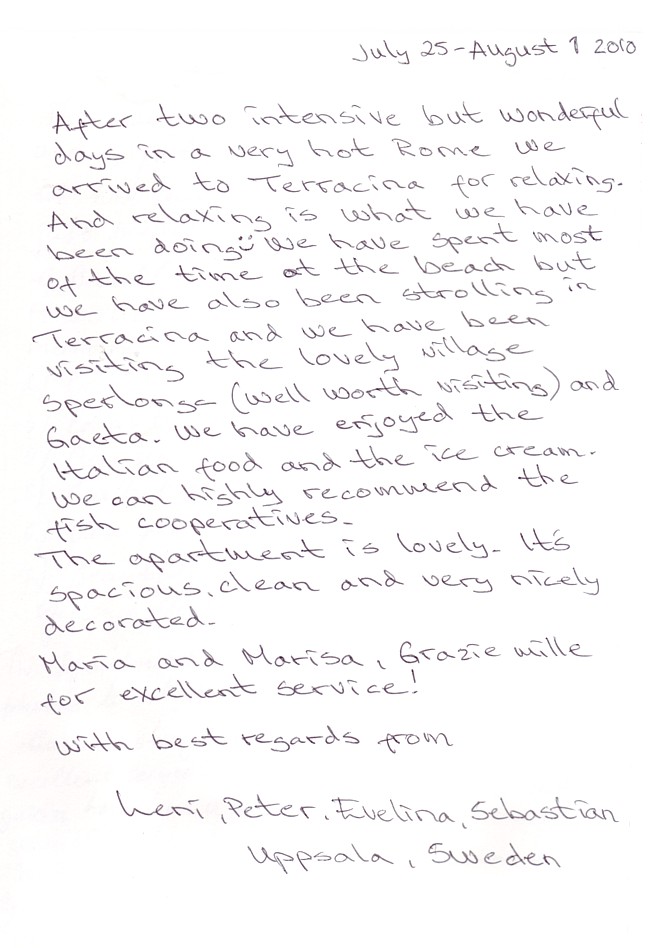 July 25 - August 1 2010
After two intensive but wonderful
days in a very hot Rome we
arrived to Terracina for relaxing.
And relaxing is what we have
been doing :) We have spent most
of the time at the beach but
we have also been strolling in
Terracina and we have been
visiting the lovely village
Sperlonga (well worth visiting) and
Gaeta. We have enjoyed the
Italian food and the ice cream.
We can highly recommend the
fish cooperatives.
The apartment is lovely. It's
spacious, clean and very nicely
decorated.
Maria and Marisa, Grazie mille
for excellent service!
With best regards from
Leni, Peter, Evelina, Sebastian
Uppsala, Sweden